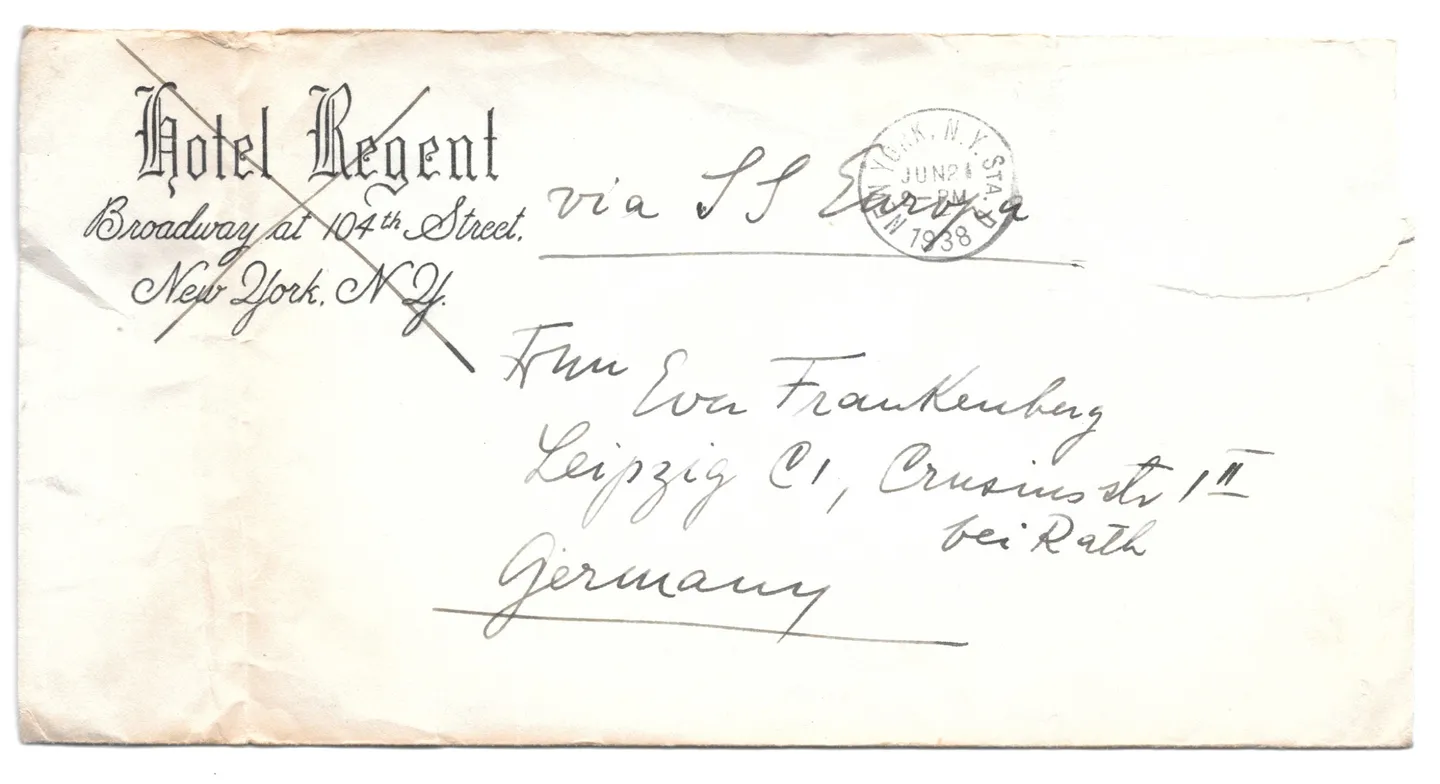 Hotel Regent
Broadway at 104th Street,
New York, N.Y.
via SS Europa
NEW YORK, N.Y. STA.
JUN 21
PM
1938
Frau
Eva Frankenberg
Leipzig C1, Crusiusstr 1 II
bei Rath
Germany